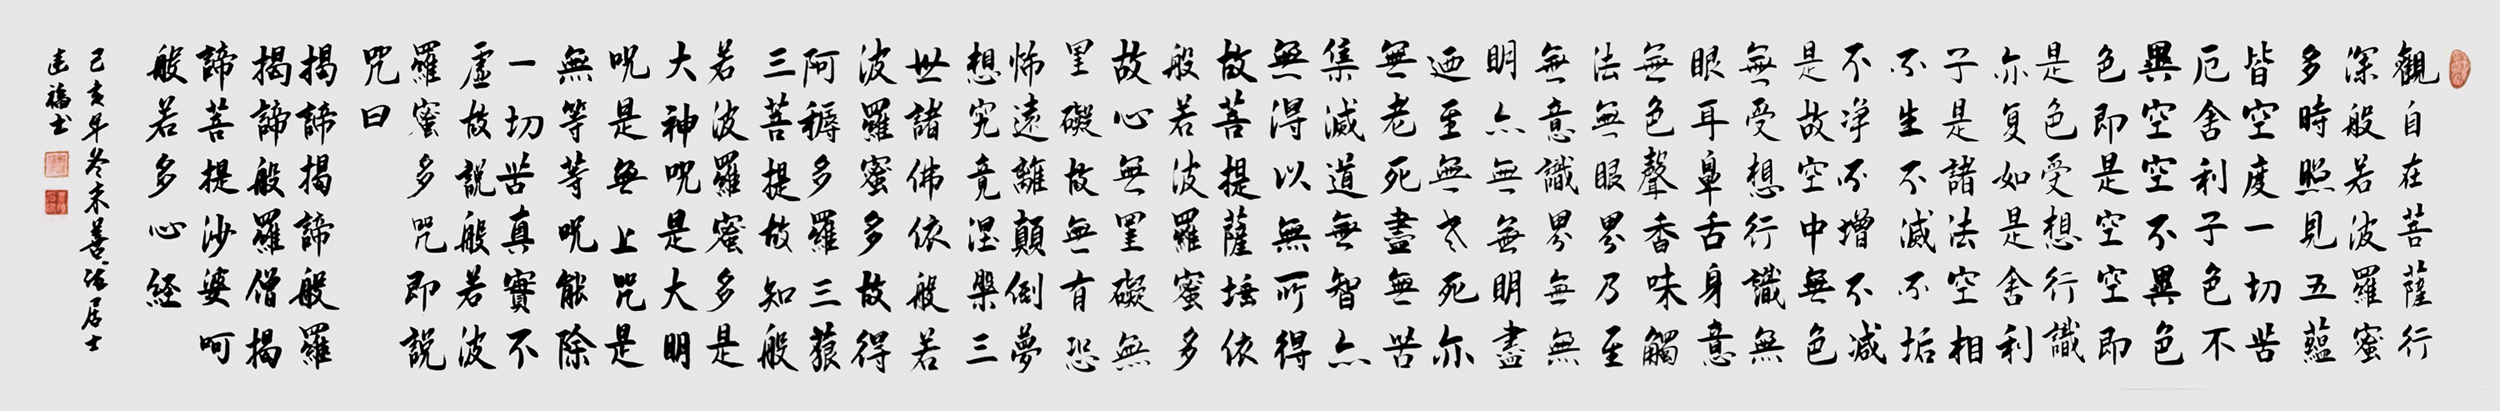 觀自在菩薩行
深般若波羅蜜
多時照見五蘊
皆空度一切苦
厄舍利子色不
異空空不異色
色即是空空即
是色受想行識
亦复如是舍利
子是諸法空相
不生不滅不垢
不淨不增不减
是故空中無色
無受想行識無
眼耳鼻舌身意
無色聲香味觸
法無眼界乃至
無意識界無無
明亦無無明盡
迺至無老死亦
無老死盡無苦
集滅道無智亦
無得以無所得
故菩提薩埵依
般若波羅蜜多
故心無罣礙無
罣礙故無有恐
怖遠離顛倒夢
想究竟涅槃三
世諸佛依般若
波羅蜜多故得
阿耨多羅三藐
三菩提故知般
若波羅蜜多是
大神呪是大明
呪是無上咒是
無等等呪能除
一切苦真實不
虛故說般若波
羅蜜多咒即說
咒曰
揭諦揭諦般羅
揭諦般羅僧揭
諦菩提沙婆呵
般若多心經
己亥年冬末善法居士
福书